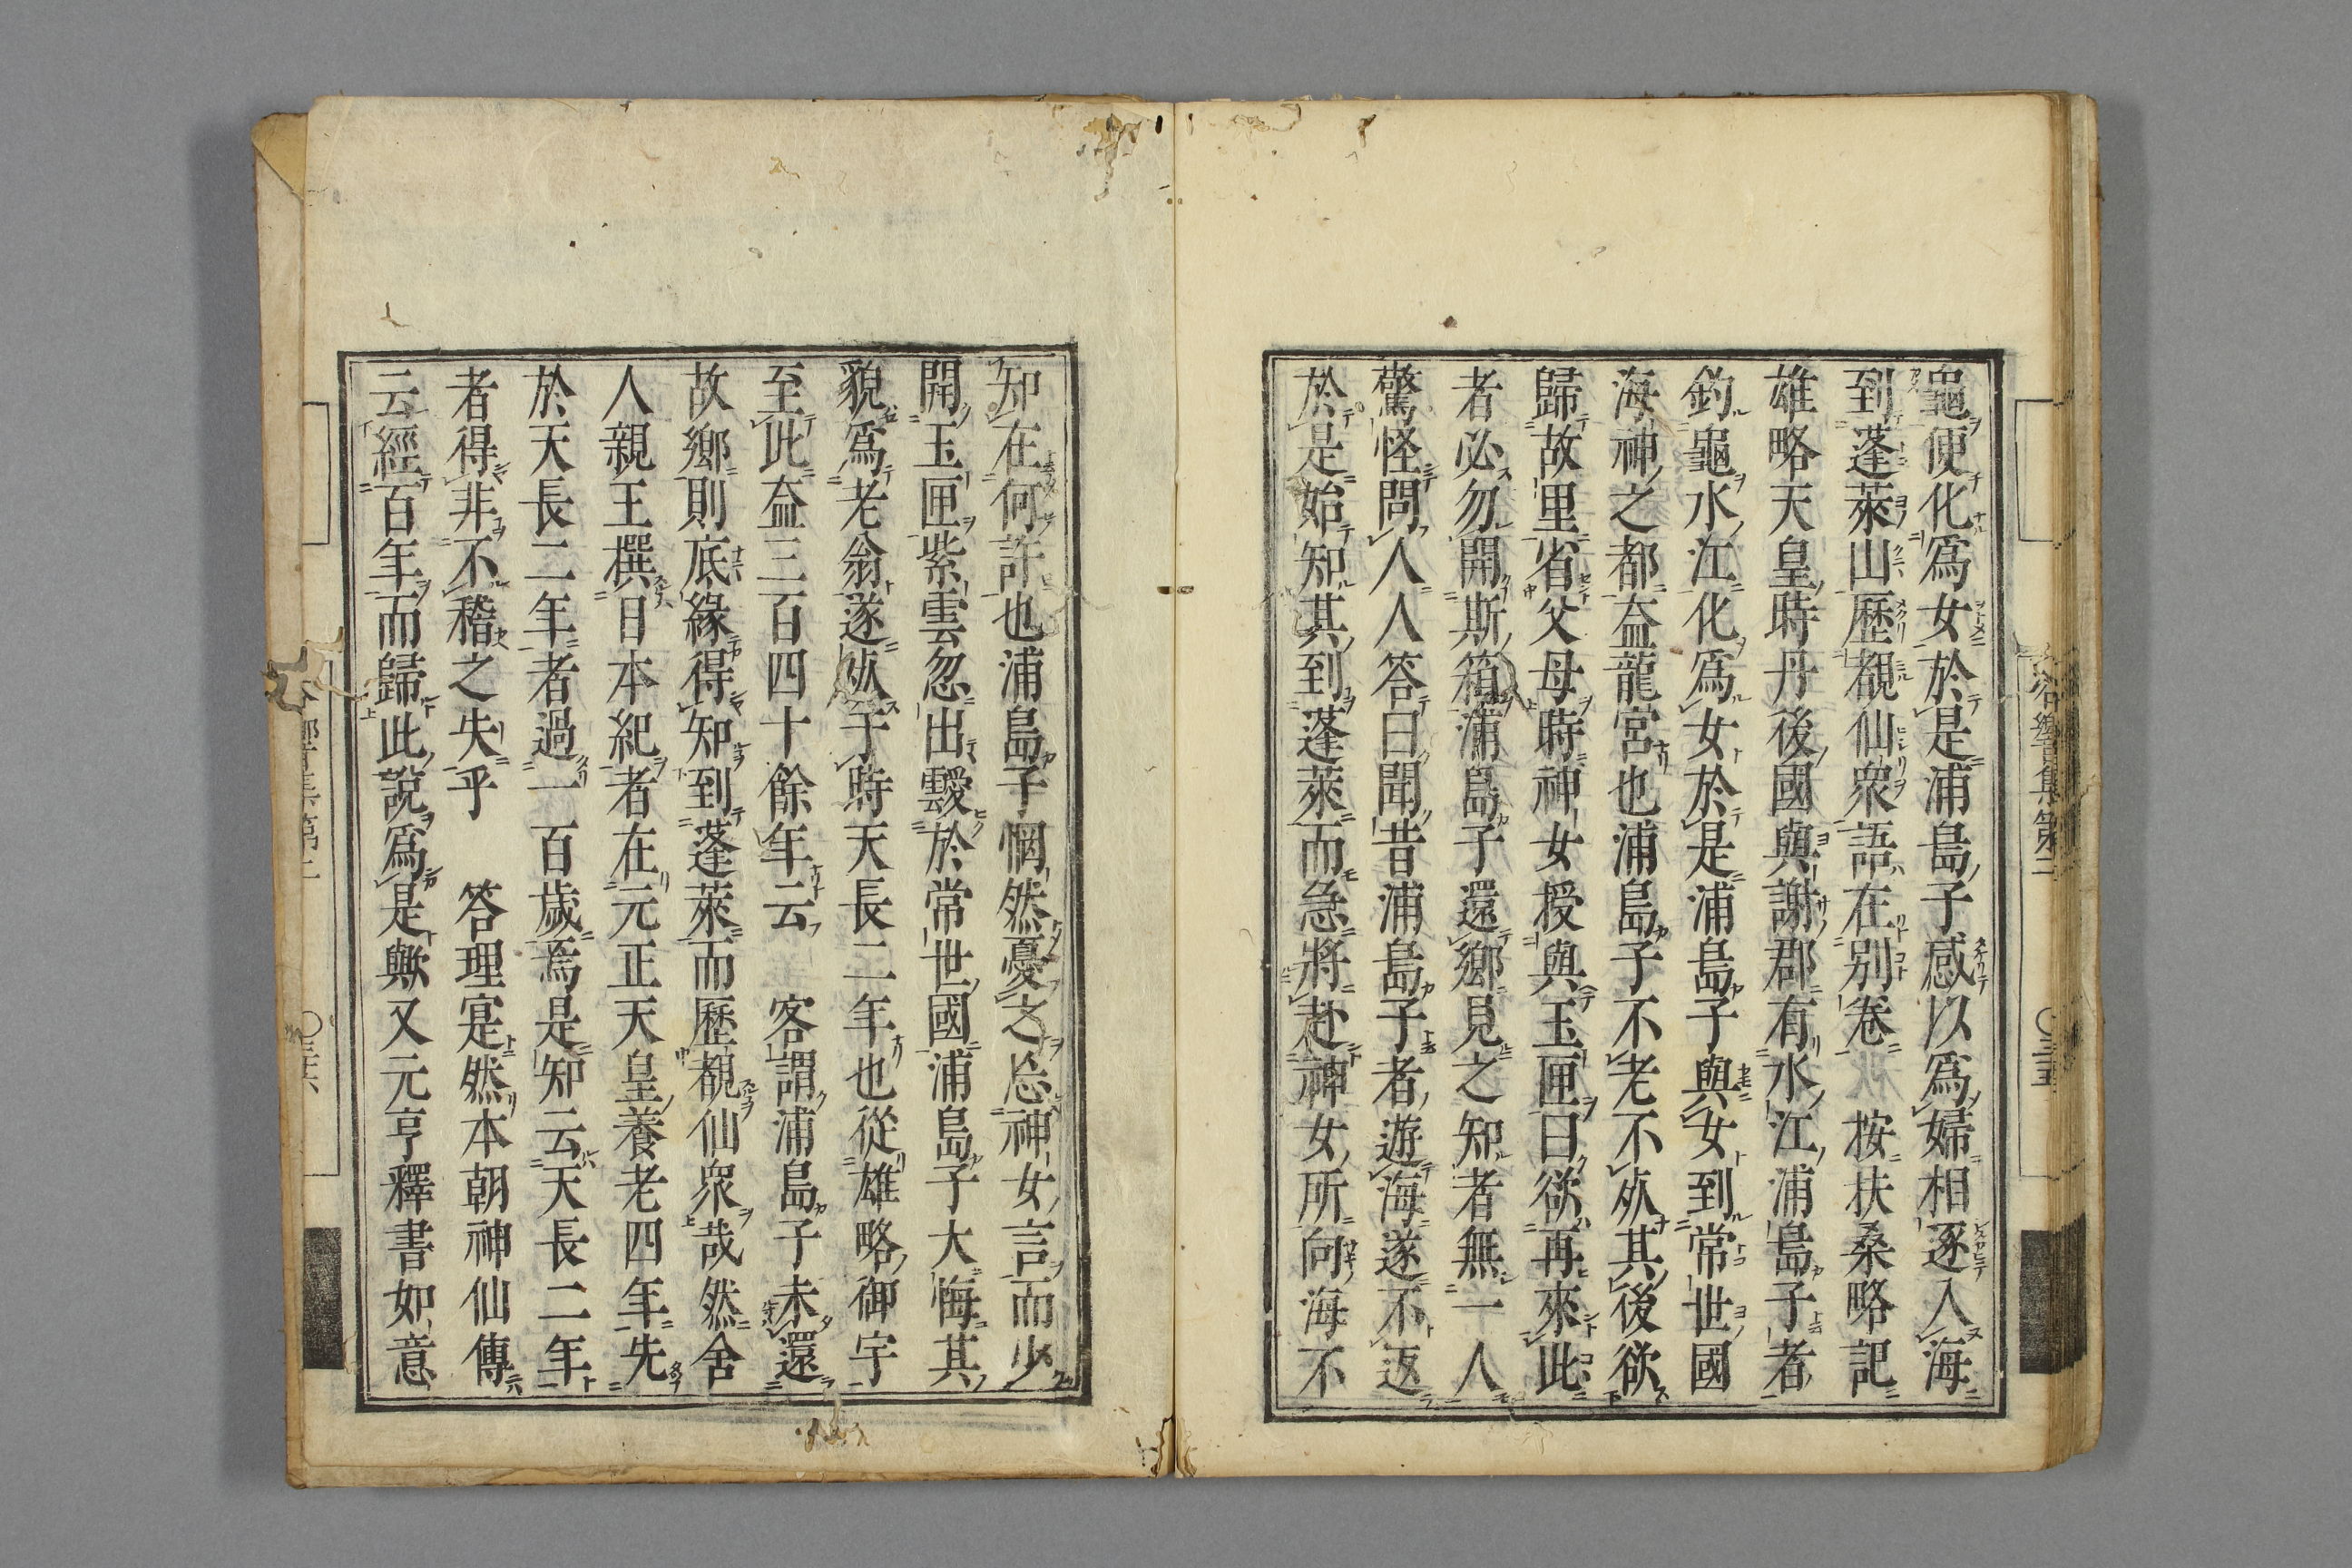 龜便化爲女於是浦島子感以爲婦相逐入海
到蓬萊山歷覩仙衆語在別卷　按扶桑略記
雄略天皇時丹後國與謝郡有水江浦島子者
釣龜水江化爲女於是浦島子與女到常世國
海神之都盖龍宮也浦島子不老不死其後欲
歸故里省父母時神女授與玉匣曰欲再來此
者必勿開斯箱浦島子還鄉見之知者無一人
驚怪問人人答曰聞昔浦島子者遊海遂不返
於是始知其到蓬萊而急將赴神女所向海不
知在何許也浦島子惘然憂之忘神女言而少
開玉匣紫雲忽出靉於常世國浦島子大悔其
貌爲老翁遂死于時天長二年也從雄略御宇
至此盖三百四十餘年云　客謂浦島子未還
故鄉則底緣得知到蓬萊而歷覩仙衆哉然舍
人親王撰日本紀者在元正天皇養老四年先
於天長二年者過一百歲焉是知云天長二年
者得非不稽之失乎　答理寔然本朝神仙傳
云經百年而歸此說爲是歟又元亨釋書如意
響集第二
〇三五
響集第二
〇三六